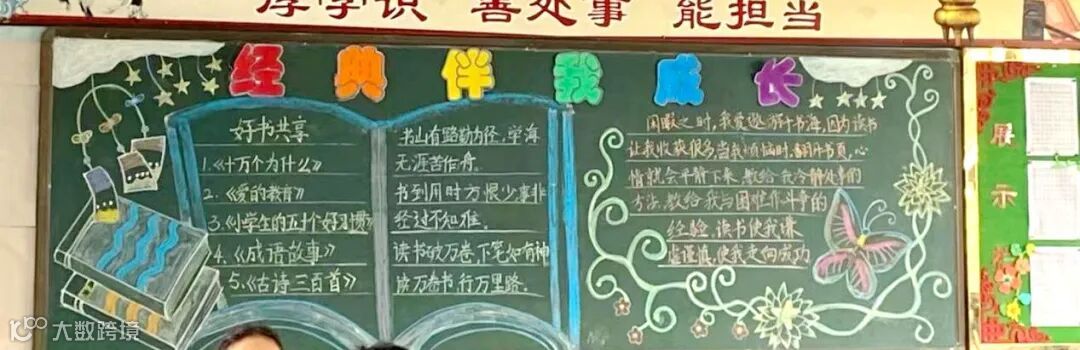 厚学识 善处事 能担当
经典伴我成长
好书共享
1.《十万个为什么》
2.《爱的教育》
3.《小学生的五十个好习惯》
4.《成语故事》
5.《古诗三百首》
书山有路勤为径,学海
无涯苦作舟。
书到用时方恨少事非
经过不知难。
读书破万卷、下笔如有神
读万卷书,行万里路。
闲暇之时,我爱遨游于书海,因为读书
让我收获很多,当我烦恼时,翻开书页,心
情就会平静下来,教给我冷静处事的
方法,教给我与困难作斗争的
经验,读书使我谦
虚谨慎,使我走向成功
展示
大数跨境